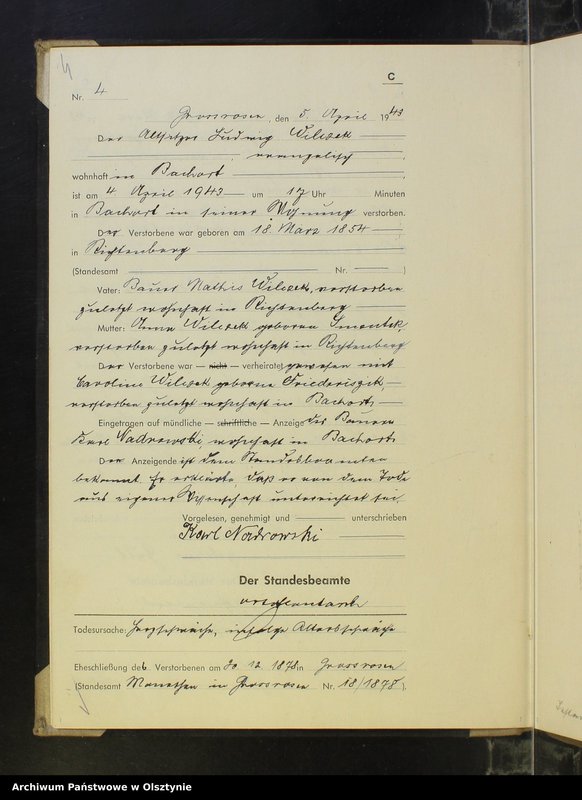 C
Nr. 4
Grossrosen, den 5. April 1943
Der Altsitzer Ludwig Wilczek
evangelisch
wohnhaft in Bachort
ist am 4. April 1943 um 17 Uhr Minuten
in Bachort in seiner Wohnung verstorben.
Der Verstorbene war geboren am 18. März 1854
in Richtenberg
(Standesamt Nr. )
Vater: Bauer Mathis Wilczek, verstorben
zuletzt wohnhaft in Richtenberg
Mutter: Anna Wilczek geborene Smontek,
verstorben zuletzt wohnhaft in Richtenberg
Der Verstorbene war — nicht — verheiratet gewesen mit
Caroline Wilczek geborene Friederiszik,
verstorben zuletzt wohnhaft in Bachort
Eingetragen auf mündliche — schriftliche — Anzeige des Bauern
Karl Nadrowski wohnhaft in Bachort
Der Anzeigende ist dem Standesbeamten
bekannt. Er erklärte, daß er von dem Tode
aus eigener Wissenschaft unterrichtet sei
Vorgelesen, genehmigt und unterschrieben
Karl Nadrowski
Der Standesbeamte
Todesursache: Herzschwäche, infolge Altersschwäche
Eheschließung des Verstorbenen am 30 12 1878 in Grossrosen
(Standesamt Monethen in Grossrosen Nr. 18/1878 ).
Archiwum Państwowe w Olsztynie